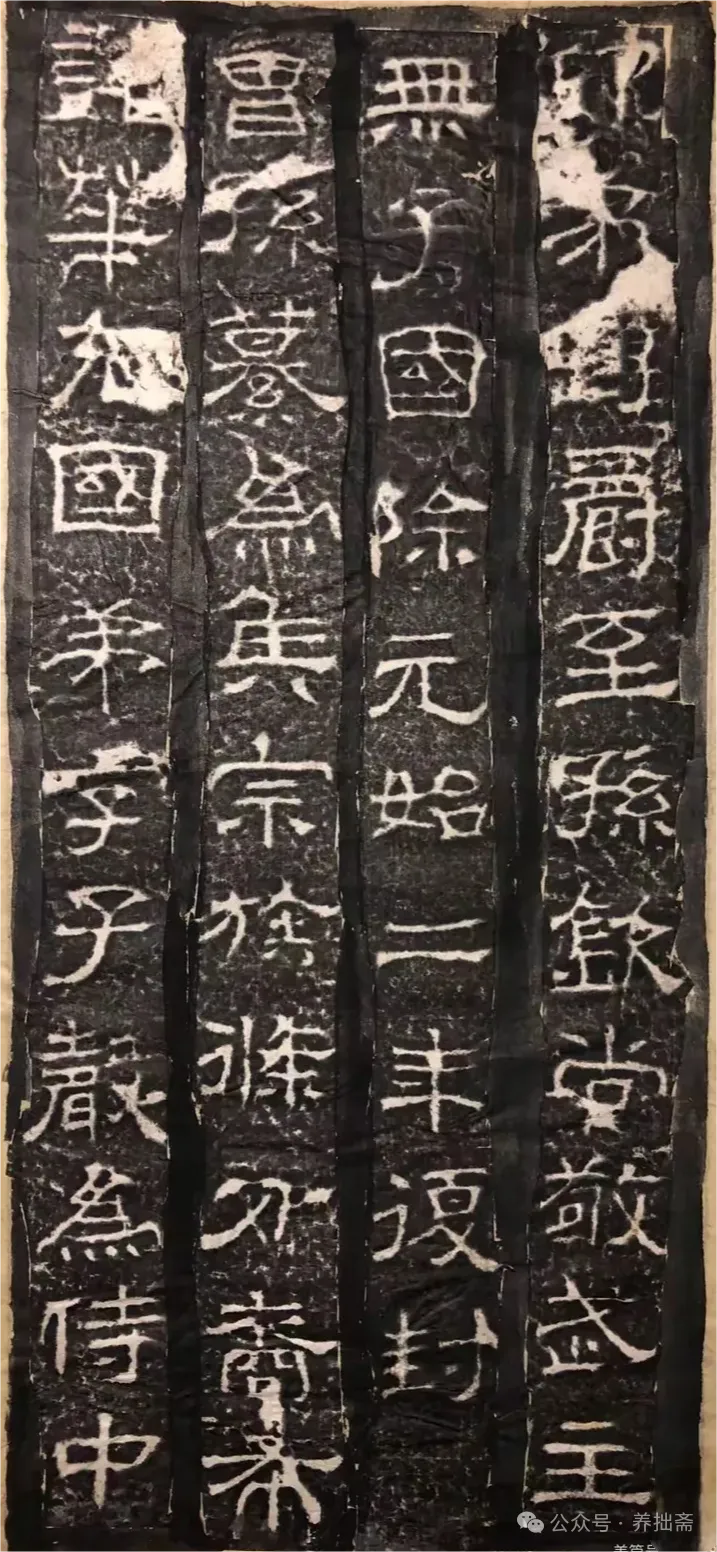 爵至孫欽尚敬武主
無子國除元始二年復封
曾孫纂為侯宗族條分裔布
諸華充國弟字子聲為侍中
公众号 · 养拙斋